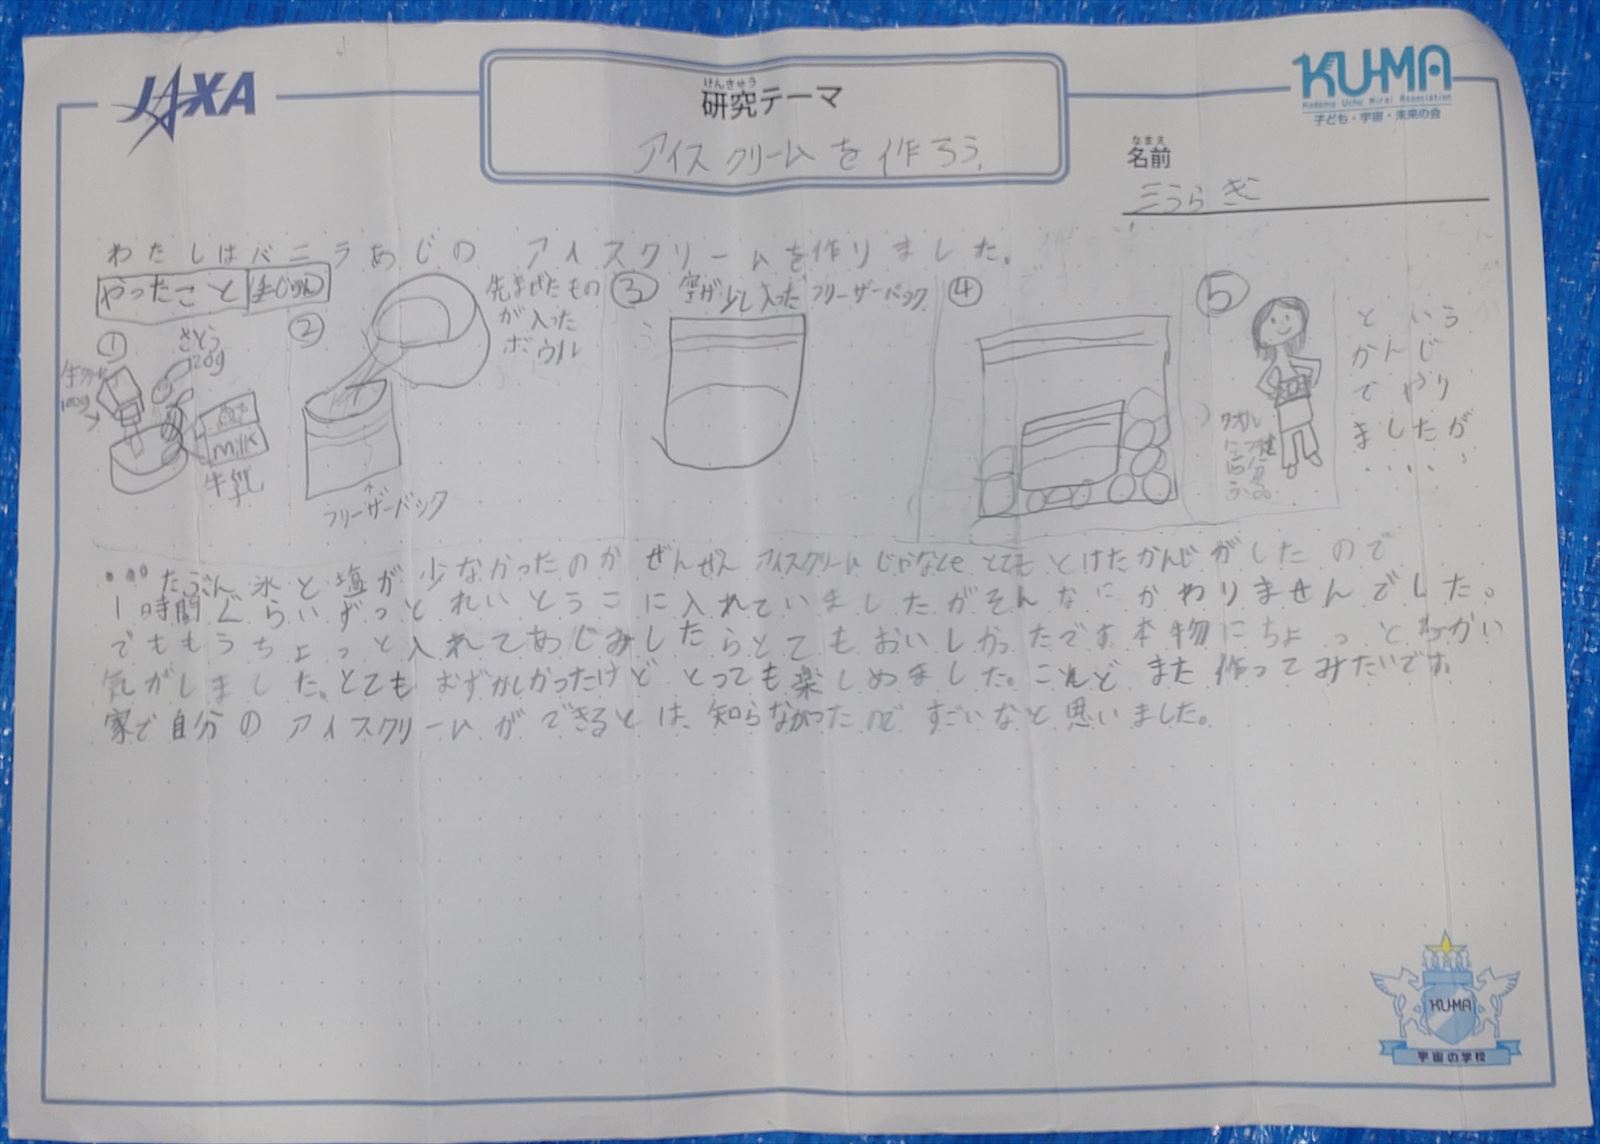 JAXA
けんきゅう
研究テーマ
アイスクリームを作ろう。
KU-MA
Kodomo Uchu Mirai Association
子ども・宇宙・未来の会
なまえ
名前
三うら
わたしはバニラあじの アイスクリームを作りました。
やったこと 手じゅん
①
生クリーム
100g
さとう
120g
milk
牛乳
②
先まぜたもの
が入った
ボウル
フリーザーバック
③
空が少し入ったフリーザーバック
④
⑤
タオル
ふる。
という
かんじ
でやり
ましたが
・・・・・
・・・たぶん氷と塩が少なかったのかぜんぜんアイスクリームじゃなくてとてもとけたかんじがしたので
1時間ぐらいずっとれいとうこに入れていましたがそんなにかわりませんでした。
でももうちょっと入れてあじみしたらとてもおいしかったです。本物にちょっとちかい
気がしました。とてもむずかしかったけどとっても楽しめました。こんどまた作ってみたいです。
家で自分のアイスクリームができるとは、知らなかったのですごいなと思いました。
KU-MA
宇宙の学校